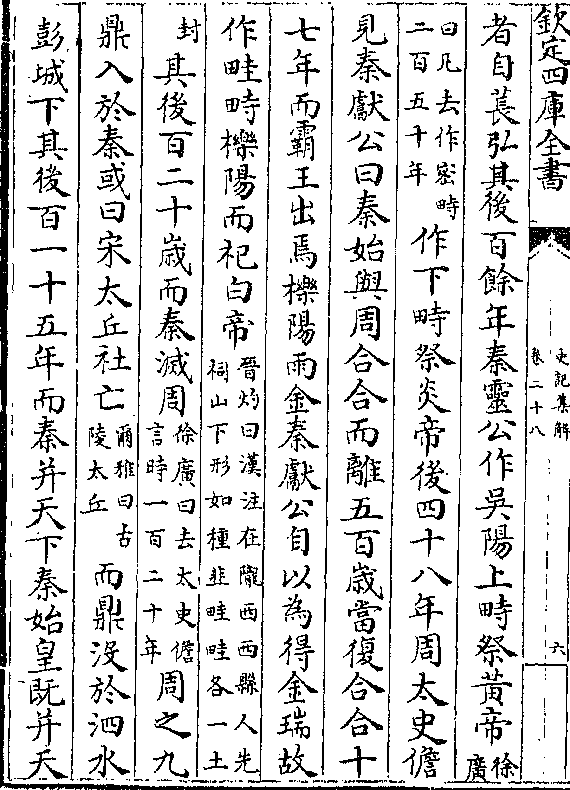 欽定四庫全書
史記集解
卷二十八
六
者自萇弘其後百餘年秦靈公作吳陽上畤祭黃帝徐廣
曰凡去作密時二百五十年作下畤祭炎帝後四十八年周太史儋
見秦獻公曰秦始與周合合而離五百歲當復合合十
七年而霸王出焉櫟陽雨金秦獻公自以為得金瑞故
作畦畤櫟陽而祀白帝晉灼曰漢注在隴西西縣人先祠山下形如種韭畦畦各一土
封其後百二十歲而秦滅周徐廣曰去太史儋言時一百二十年周之九
鼎入於秦或曰宋太丘社亡爾雅曰古陵太丘而鼎沒於泗水
彭城下其後百一十五年而秦并天下秦始皇既并天